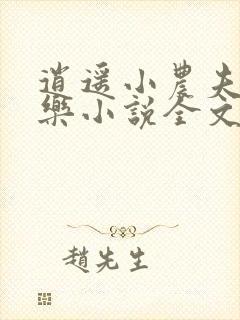 逍遥小農夫
樂小說全文
趙先生